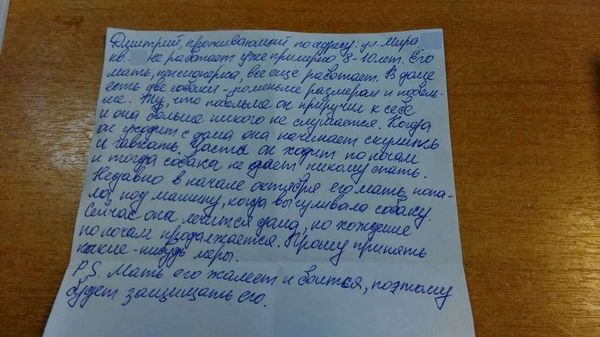 Дмитрий, проживающий по адресу: ул. Мира
кв. не работает уже примерно 8-10 лет. Его
мать, пенсионерка, все еще работает. В доме
есть две собаки - поменьше размером и поболь-
ше. Ту, что побольше он приручил к себе
и она больше никого не слушается. Когда
он уходит с дома она начинает скулить
и гавкать. Часто он ходит по ночам
и тогда собака не дает никому спать.
Недавно в начале октября его мать попа-
ла под машину, когда выгуливала собаку.
Сейчас она лечится дома, но хождение
по ночам продолжается. Прошу принять
какие-нибудь меры.
P.S. Мать его жалеет и боиться, поэтому
будет защищать его.